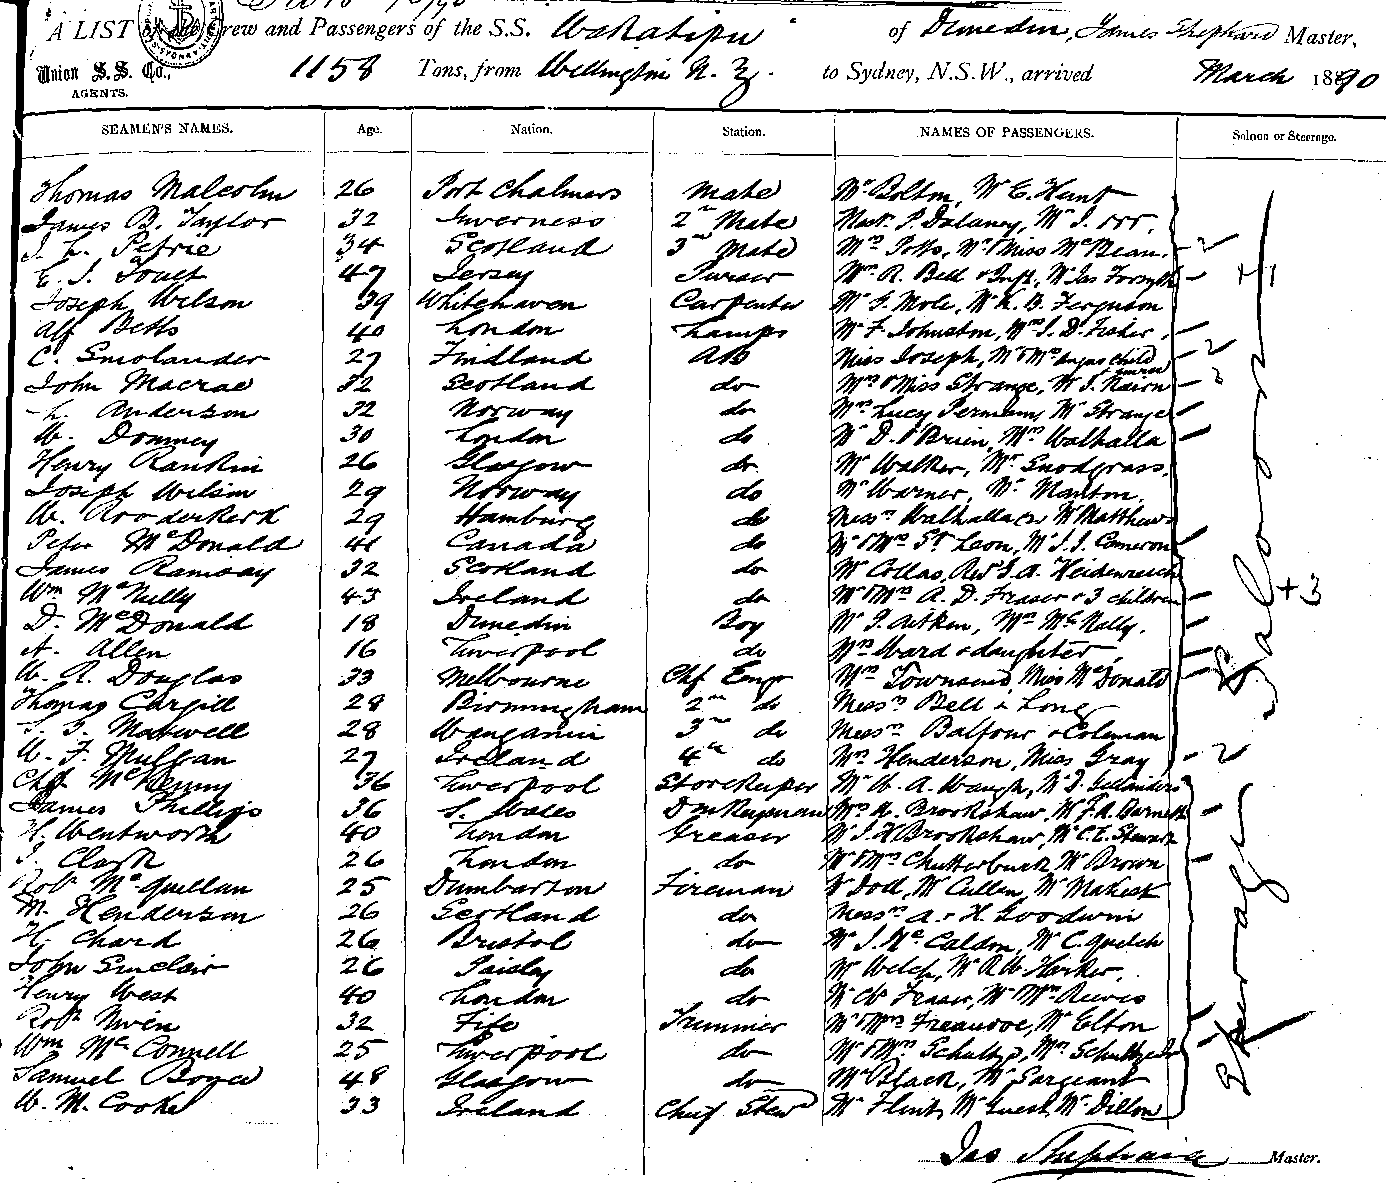 A LIST of the Crew and Passengers of the S.S. Wakatipu of Dunedin, James Shephard Master,
Union S. S. Co., 1158 Tons, from Wellington N. Z. to Sydney, N.S.W., arrived March 1890
AGENTS.
SEAMEN'S NAMES. Age. Nation. Station. NAMES OF PASSENGERS. Saloon or Steerage.
Thomas Malcolm 26 Port Chalmers Mate Mr Bolton, Mr E. Hunt
James B. Taylor 32 Inverness 2nd Mate Mast. P. Delaney, Mr J. Orr.
J. L. Petrie 34 Scotland 3rd Mate Mrs Potts, Mr & Miss McBean.
E. J. 47 Jersey Purser Mrs R. Bell & Inft, Mr Jas Forsyth
Joseph Wilson 39 Whitehaven Carpenter Mr G. Mole, Mr H. B. Ferguson
Alf Betts 40 London Lamps Mr F. Johnston, Mrs J. D. Fisher,
C. Smolander 27 Findland AB Miss Joseph, Mr & Mrs Angus child nurse
John Macrae 32 Scotland do Mrs & Miss Strange, Mr J. Nairn
L. Anderson 32 Norway do Mrs Lucy Permann, Mr Strange
W. Dommey 30 London do Mr D. O'Brien, Mrs Walhalla
Henry Rankin 26 Glasgow do Mr Walker, Mr Snodgrass,
Joseph Wilson 29 Norway do Mr Warner, Mr Manton,
W. 29 Hamburg do Messrs Walhalla Mr Matthews
Peter McDonald 41 Canada do Mr & Mrs St Leon, Mr J. J. Cameron
James Ramsay 32 Scotland do Mr Collas, Revd G. A. Heidenreich
Wm McNelly 43 Ireland do Mr & Mrs A. D. Fraser & 3 children
D. McDonald 18 Dunedin Boy Mr J. Aitken, Mrs McNally.
A. Allen 16 Liverpool do Mrs Ward & daughter
W. R. Douglas 33 Melbourne Chf Engr Mrs Townsend, Miss McDonald
Thomas Cargill 28 Birmingham 2nd do Messrs Bell & Long
Maxwell 28 Wanganui 3rd do Messrs Balfour & Coleman
W. F. Mulgan 27 Ireland 4th do Mrs Henderson, Miss Gray
Chas McKenny 36 Liverpool Storekeeper Mr W. A. Waugh, Mr J. Gellanders
James Phillips 36 S. Wales Donkeyman Mrs H. Brookshaw, Mr F. A. Barnett
H. Wentworth 40 London Greaser Mr J. H. Brookshaw, Mr C. E. Stewart
J. Clark 26 London do Mr & Mrs Chutterbuck, Mr Brown
Robt McQuellan 25 Dumbarton Fireman Mr Dod, Mr Cullen, Mr
M. Henderson 26 Scotland do Messrs A. & H. Goodwin
H. Chard 26 Bristol do Mr J. McCaldon, Mr C. Quelch
John Sinclair 26 Paisley do Mr Welch, Mr R. W. Harker,
Henry West 40 London do Mr W. Fraser, Mr & Mrs Reeves
Robt Niven 32 Fife Trimmer Mr & Mrs Mr Elton
Wm McConnell 25 Liverpool do Mr & Mrs Schultze, Mrs Schultze
Samuel Boyce 48 Glasgow do Mr Black, Mr Sargeant
W. M. Cooke 33 Ireland Chief Stewd Mr Flint, Mr Guest, Mr Dillon
Saloon
+3
Steerage
Jas Shephard Master.